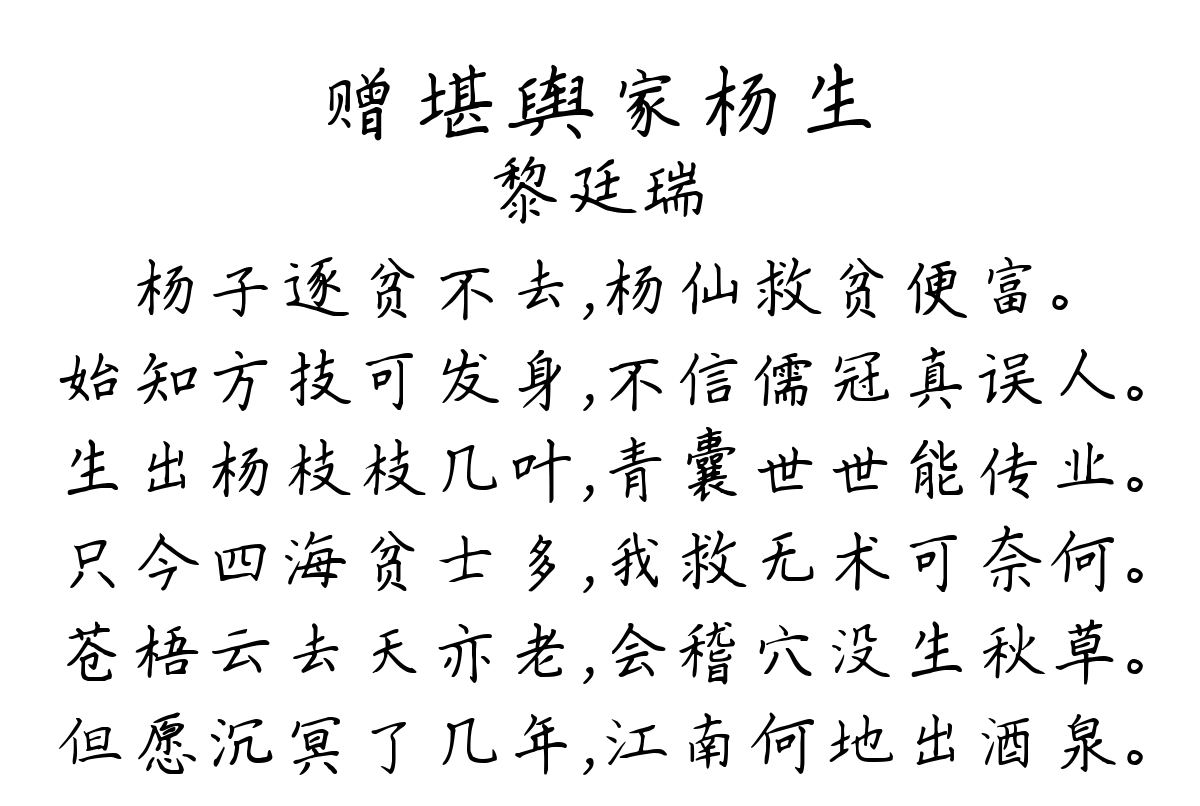 赠堪舆家杨生
黎廷瑞
杨子逐贫不去,杨仙救贫便富。
始知方技可发身,不信儒冠真误人。
生出杨枝枝几叶,青囊世世能传业。
只今四海贫士多,我救无术可奈何。
苍梧云去天亦老,会稽穴没生秋草。
但愿沉冥了几年,江南何地出酒泉。